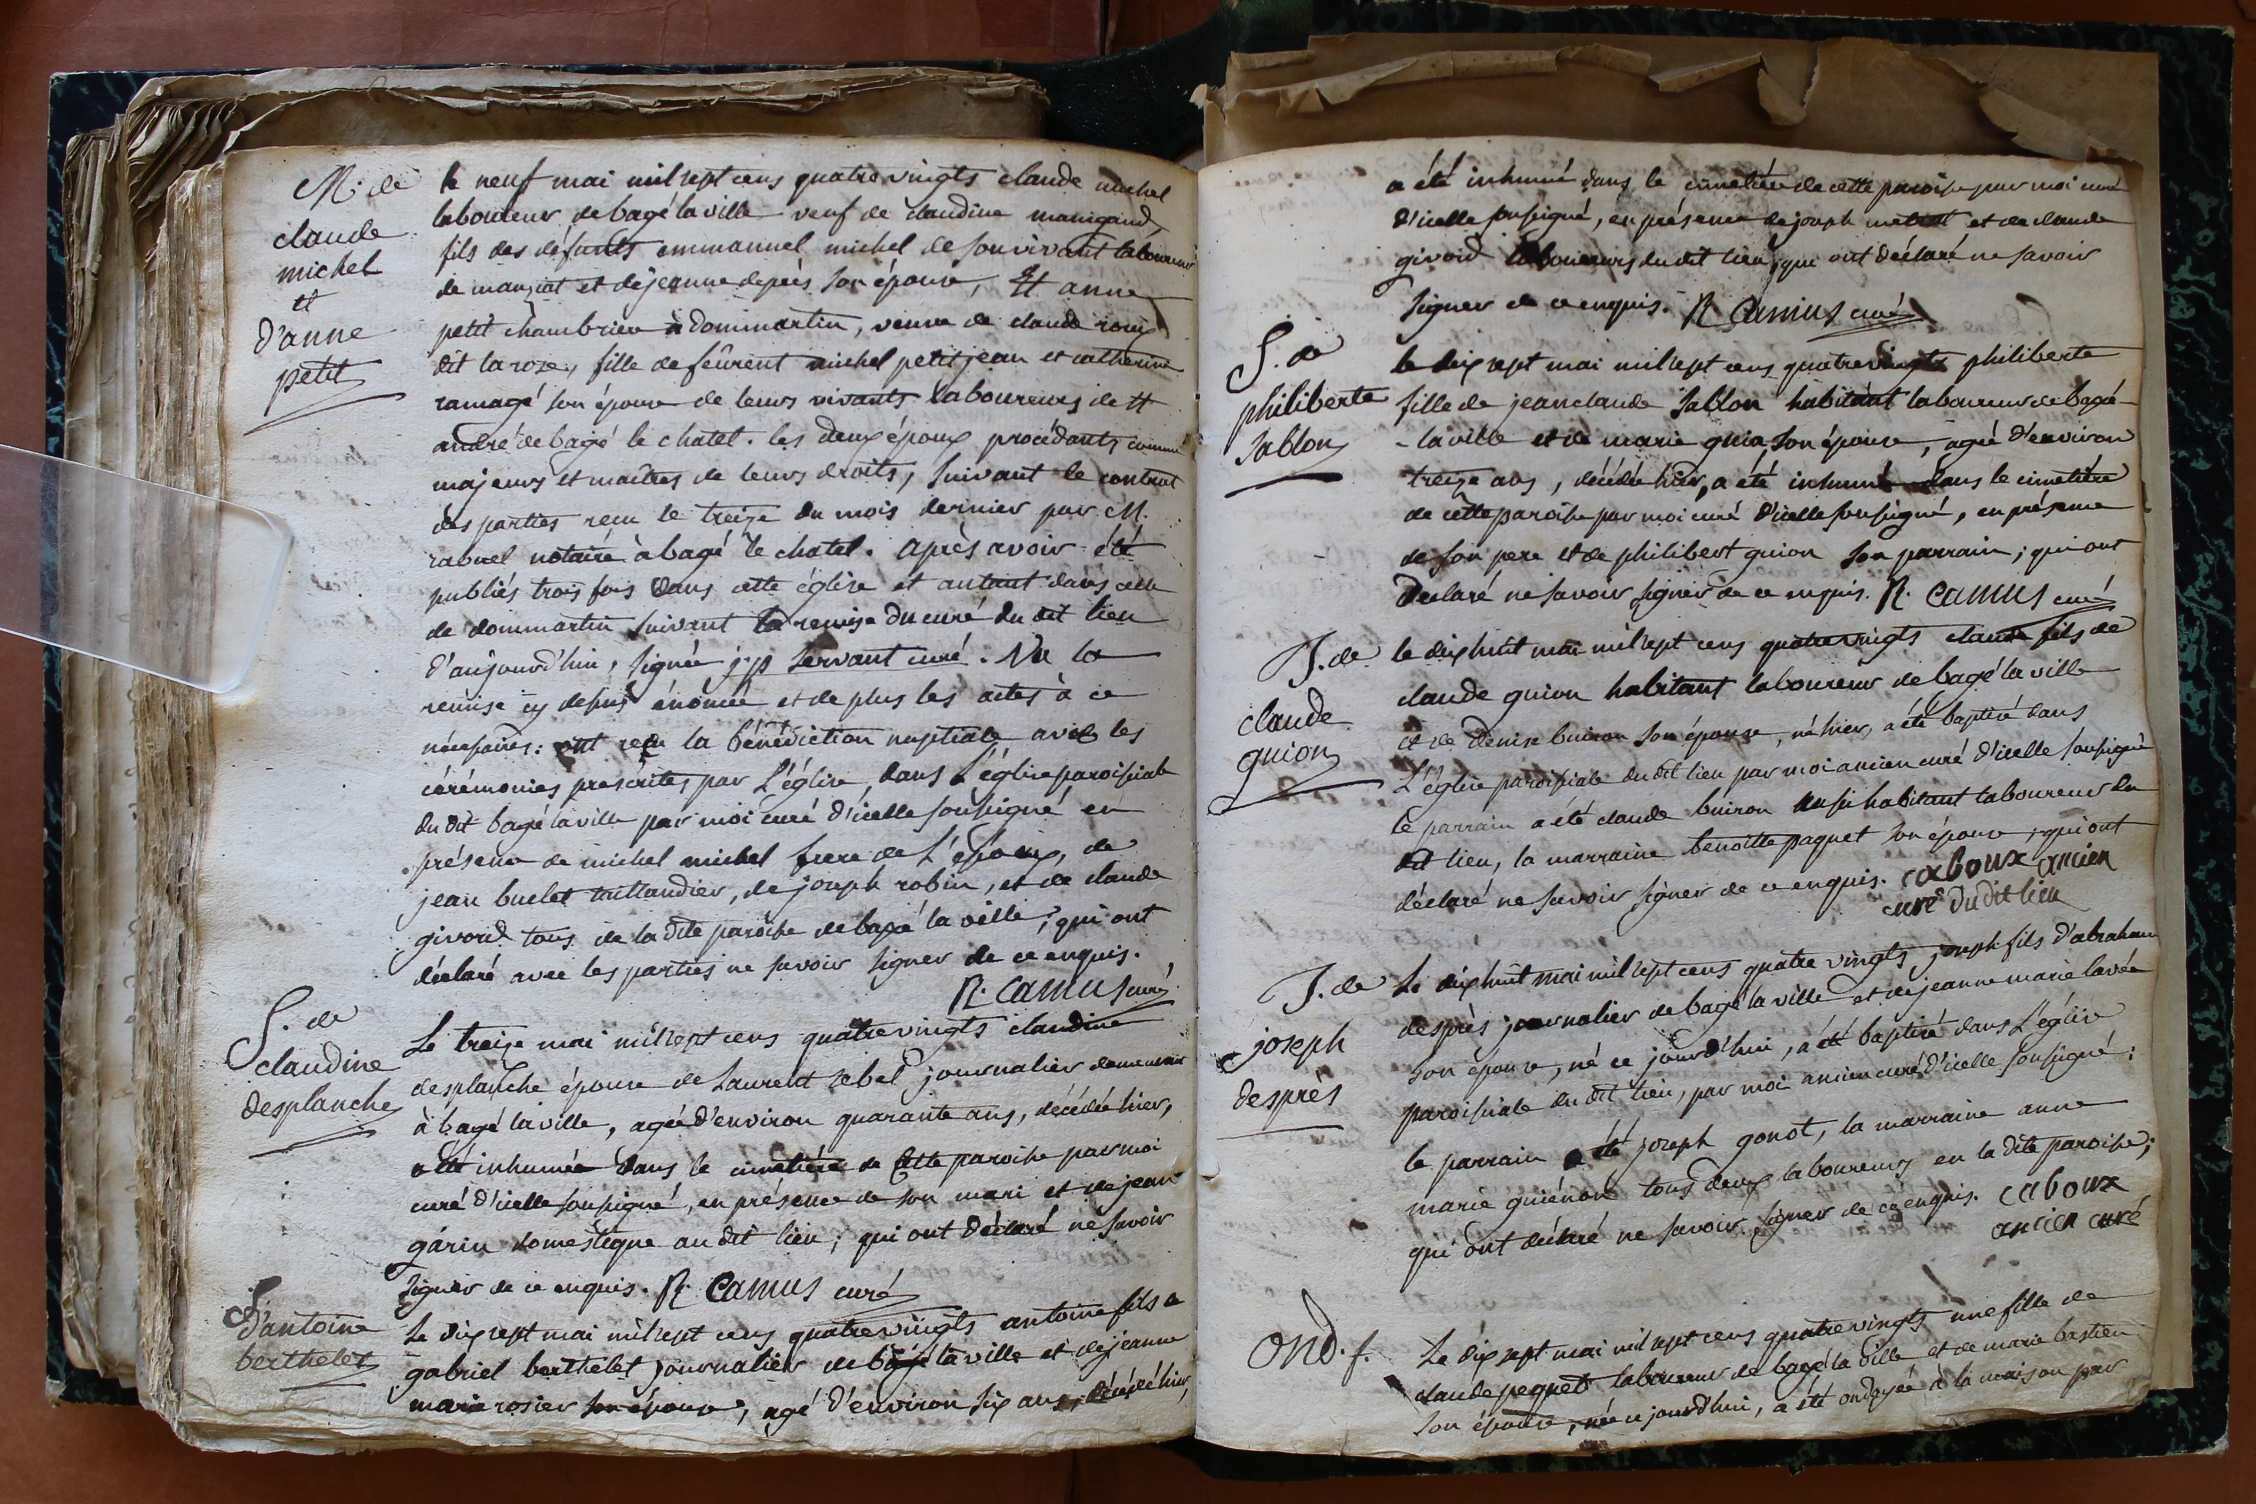 M. de
claude
michel
et
d'anne
petit
le neuf mai mil sept cens quatre vingts claude michel
laboureur de bagé la ville veuf de claudine manigand,
fils des défunts emmanuel michel de son vivant laboureur
de manziat et de jeanne deprès son épouse, Et anne
petit chambriere à dommartin, veuve de claude
dit la roze, fille de feürent michel petitjean et catherine
ramagé son épouse de leurs vivants laboureurs de st
andré de bagé le chatel. les deux époux procédants comme
majeurs et maîtres de leurs droits, suivant le contract
des parties reçu le treize du mois dernier par M.
rabuel notaire à bagé le chatel. après avoir été
publiés trois fois dans cette église et autant dans celle
de dommartin suivant la remise du curé du dit lieu
d'aujourd'hui, signée j: p servant curé. Vu la
remise cy desus énoncée et de plus les actes à ce
nécessaires: ont reçu la bénédiction nuptiale avec les
cérémonies prescrites par L'église, dans L'église paroissiale
du dit bagé la ville par moi curé d'icelle soussigné en
présence de michel michel frere de L'époux, de
jean buclet taillandier, de joseph robin, et de claude
givord tous de la dite paroisse de bagé la ville, qui ont
déclaré avec les parties ne savoir signer de ce enquis.
R. Camus curé
S. de
claudine
desplanche
Le treize mai mil sept cens quatre vingts claudine
desplanche épouse de Laurent rebel journalier demeurant
à bagé la ville, agée d'environ quarante ans, décédée hier,
a été inhumée dans le cimetière de cette paroisse par moi
curé d'icelle soussigné, en présence de son mari et de jean
garin domestique au dit lieu; qui ont déclaré ne savoir
signer de ce enquis. R. Camus curé
S.
d'antoine
berthelet
Le dix sept mai mil sept cens quatre vingts antoine fils de
gabriel berthelet journalier de bagé la ville et de jeanne
marie rosier son épouse, agé d'environ six ans, décédé hier,
a été inhumé dans le cimetière de cette paroisse par moi curé
d'icelle soussigné, en présence de joseph et de claude
givord laboureurs du dit lieu, qui ont déclaré ne savoir
signer de ce enquis. R. Camus curé
S. de
philiberte
sablon
le dix sept mai mil sept cens quatre vingts philiberte
fille de jean claude sablon habitant laboureur de bagé
la ville et de marie guion son épouse, agée d'environ
treize ans, décédée hier, a été inhumée dans le cimetière
de cette paroisse par moi curé d'icelle soussigné, en présence
de son pere et de philibert guion son parrain, qui ont
déclaré ne savoir signer de ce enquis. R. Camus curé
J. de
claude
guion
le dix huit mai mil sept cens quatre vingts claude fils de
claude guion habitant laboureur de bagé la ville
et de denise buiron son épouse, né hier, a été baptisé dans
L'église paroissiale du dit lieu par moi ancien curé d'icelle soussigné
le parrain a été claude buiron aussi habitant laboureur du
dit lieu, la marraine benoitte paquet son épouse, qui ont
déclaré ne savoir signer de ce enquis. caboux ancien
curé du dit lieu
J. de
joseph
desprès
Le dix huit mai mil sept cens quatre vingts joseph fils d'abraham
desprès journalier de bagé la ville et de jeanne marie lavée
son épouse, né ce jourd'hui, a été baptisé dans L'église
paroissiale du dit lieu, par moi ancien curé d'icelle soussigné:
le parrain a été joseph gonot, la marraine anne
marie guiénon tous deux laboureurs en la dite paroisse;
qui ont déclaré ne savoir signer de ce enquis. caboux
ancien curé
Ond. f.
Le dix sept mai mil sept cens quatre vingts une fille de
claude pequet laboureur de bagé la ville et de marie bastien
son épouse, née ce jourd'hui, a été ondoyée à la maison par